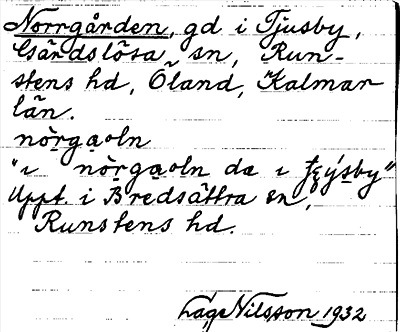 Norrgården, gd i Tjusby,
Gärdslösa sn, Run-
stens hd, Öland, Kalmar
län.
nòrga̱oln
"i nòrga̱oln da i ʈɕy̌sby"
Uppt. i Bredsättra sn,
Runstens hd.
Lage Nilsson 1932